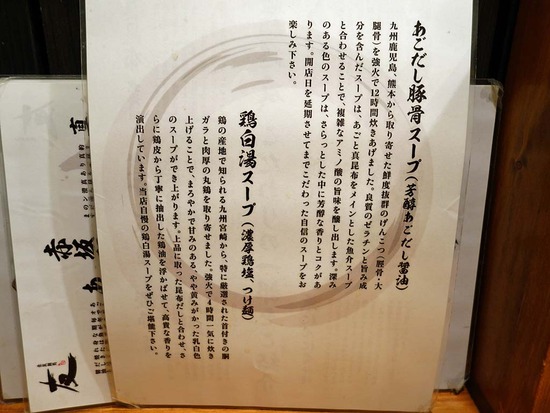 あごだし豚骨スープ（芳醇あごだし醤油）
九州鹿児島、熊本から取り寄せた鮮度抜群のげんこつ（膝骨・大
腿骨）を強火で12時間炊きあげました。良質のゼラチンと旨み成
分を含んだスープは、あごと真昆布をメインとした魚介スープ
と合わせることで、複雑なアミノ酸の旨味を醸し出します。深み
のある色のスープは、さらっとした中に芳醇な香りとコクがあ
ります。開店日を延期させてまでこだわった自信のスープをお
楽しみ下さい。
鶏白湯スープ（濃厚鶏塩、つけ麺）
鶏の産地で知られる九州宮崎から、特に厳選された首付きの胴
ガラと肉厚の丸鶏を取り寄せました。強火で4時間一気に炊き
上げることで、まろやかで甘みのある、やや黄みがかった乳白色
のスープができ上がります。上品に取った昆布だしと合わせ、さ
らに鶏皮から丁寧に抽出した鶏油を浮かばせて、高貴な香りを
演出しています。当店自慢の鶏白湯スープをぜひご堪能下さい。
赤坂
友